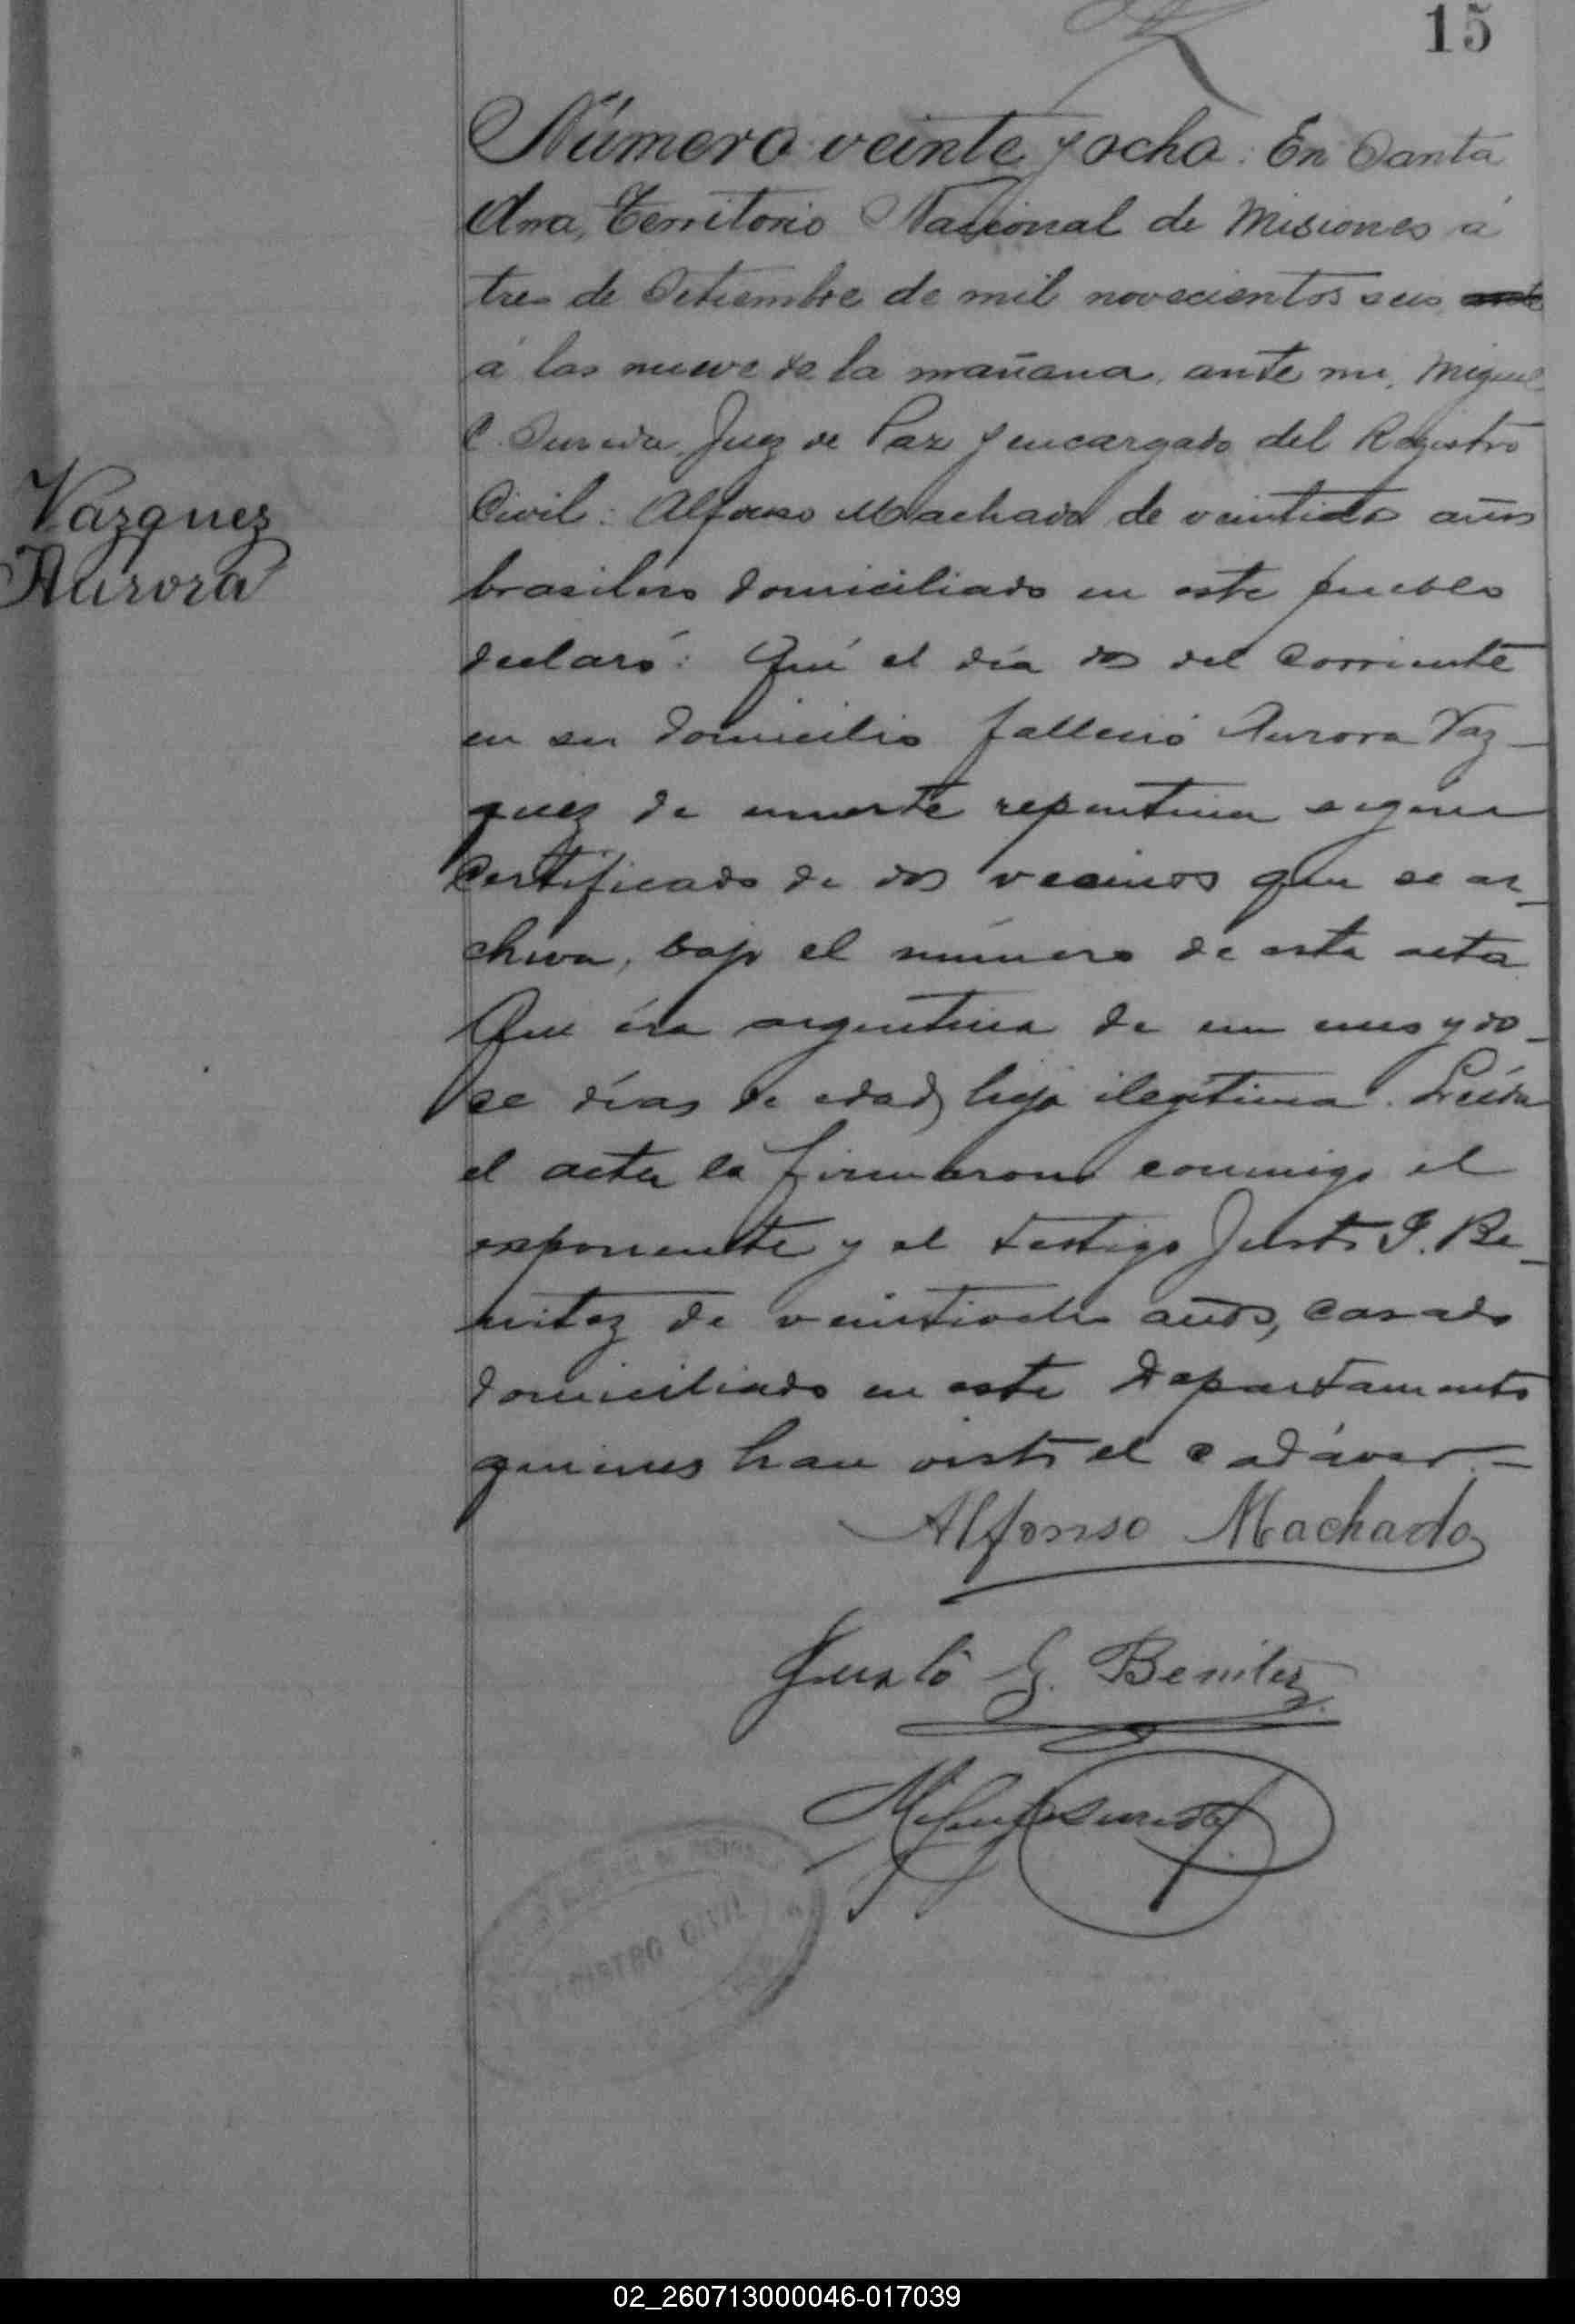 15
Número veinte y ocho. En Santa
Ana, Territorio Nacional de Misiones á
tres de Setiembre de mil novecientos seis
á las nueve de la mañana, ante mi, Miguel
C. Juez de Paz y encargado del Registro
Civil: Alfonso Machado de veintidos años
brasilero domiciliado en este pueblo
declaró: Qué el día dos del corriente
en su domicilio falleció Aurora Vaz-
quez de muerte repentina segun
certificado de dos vecinos que se ar-
chiva, bajo el número de esta acta
Que éra argentina de un mes y do-
ce días de edad, hija ilegítima. Leída
el acta la firmaron conmigo el
exponente y el testigo Justo G. Be-
nitez de veintiocho años, casado
domiciliado en este Departamento
quienes han visto el cadáver.—
Vazquez
Aurora
Alfonso Machado
Justo G. Benitez
REGISTRO CIVIL
02_260713000046-017039